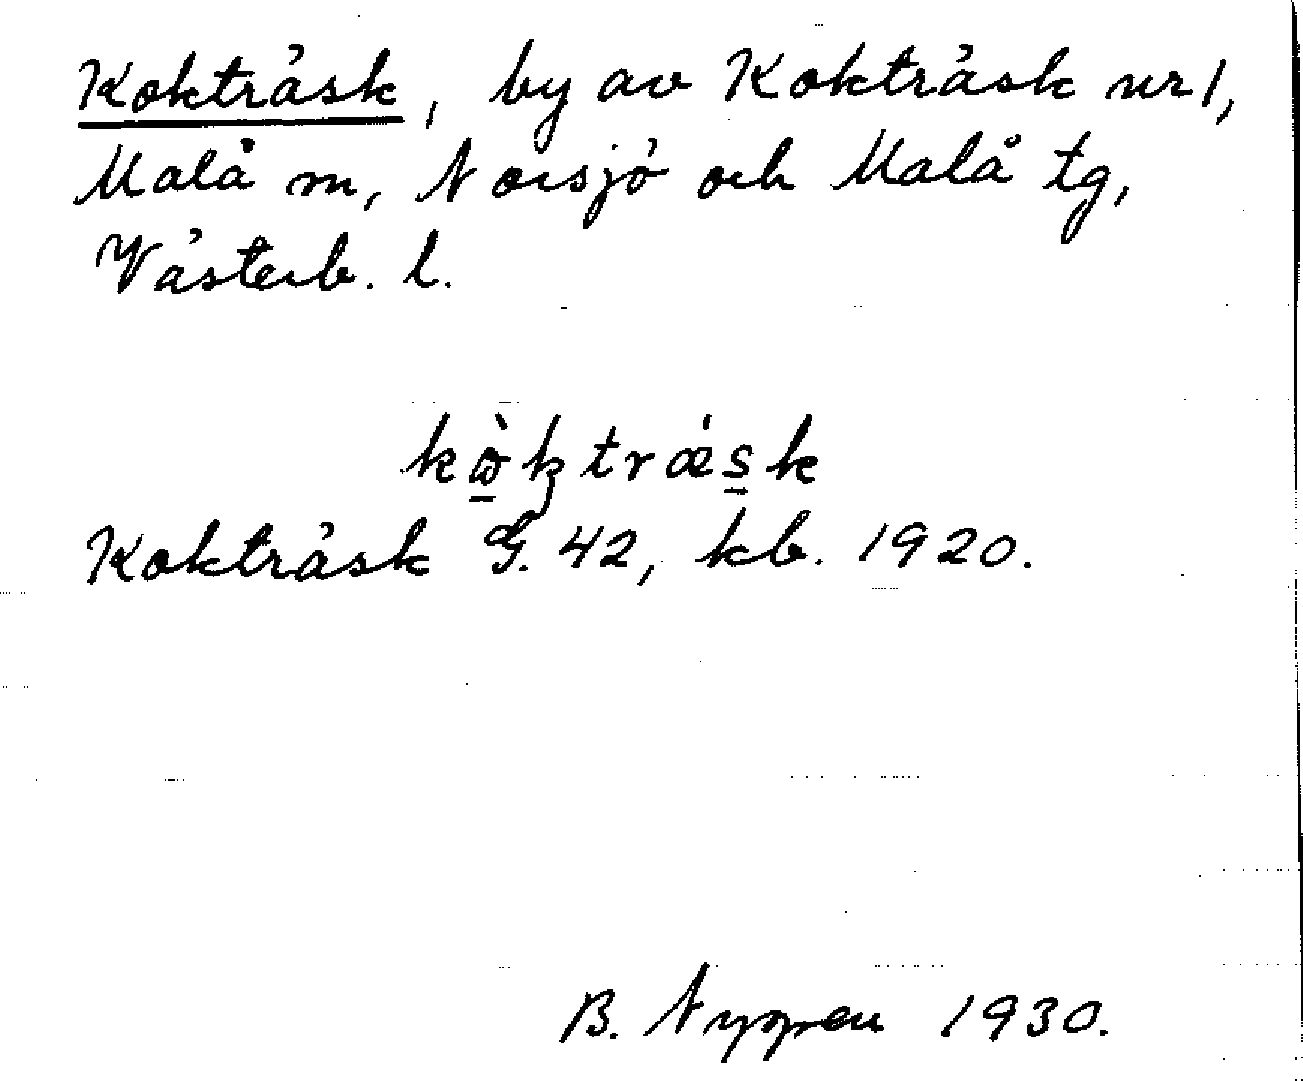 Kokträsk, by av Kokträsk nr 1,
Malå m, Norsjö och Malå tg,
Västerb. l.
kὼ̠ꝁtrǽs̠k
Kokträsk G. 42, kb. 1920.
B. Nygren 1930.